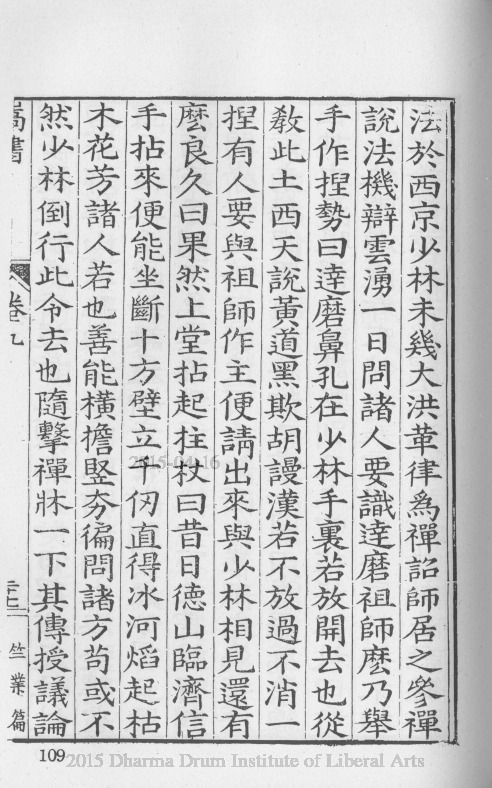 法於西京少林未幾大洪革律爲禪詔師居之參禪
說法機辯雲湧一日問諸人要識達磨祖師麽乃舉
手作揑勢曰達磨鼻孔在少林手裏若放開去也從
敎此土西天說黃道黑欺胡謾漢若不放過不消一
揑有人要與祖師作主便請出來與少林相見還有
麽良久曰果然上堂拈起柱杖曰昔日德山臨濟信
手拈來便能坐斷十方壁立千仞直得冰河熖起枯
木花芳諸人若也善能橫擔竪夯徧問諸方苟或不
然少林倒行此令去也隨擊禪牀一下其傳授議論
嵩書
卷九
竺業篇
109
2015-04-16
2015 Dharma Drum Institute of Liberal Arts